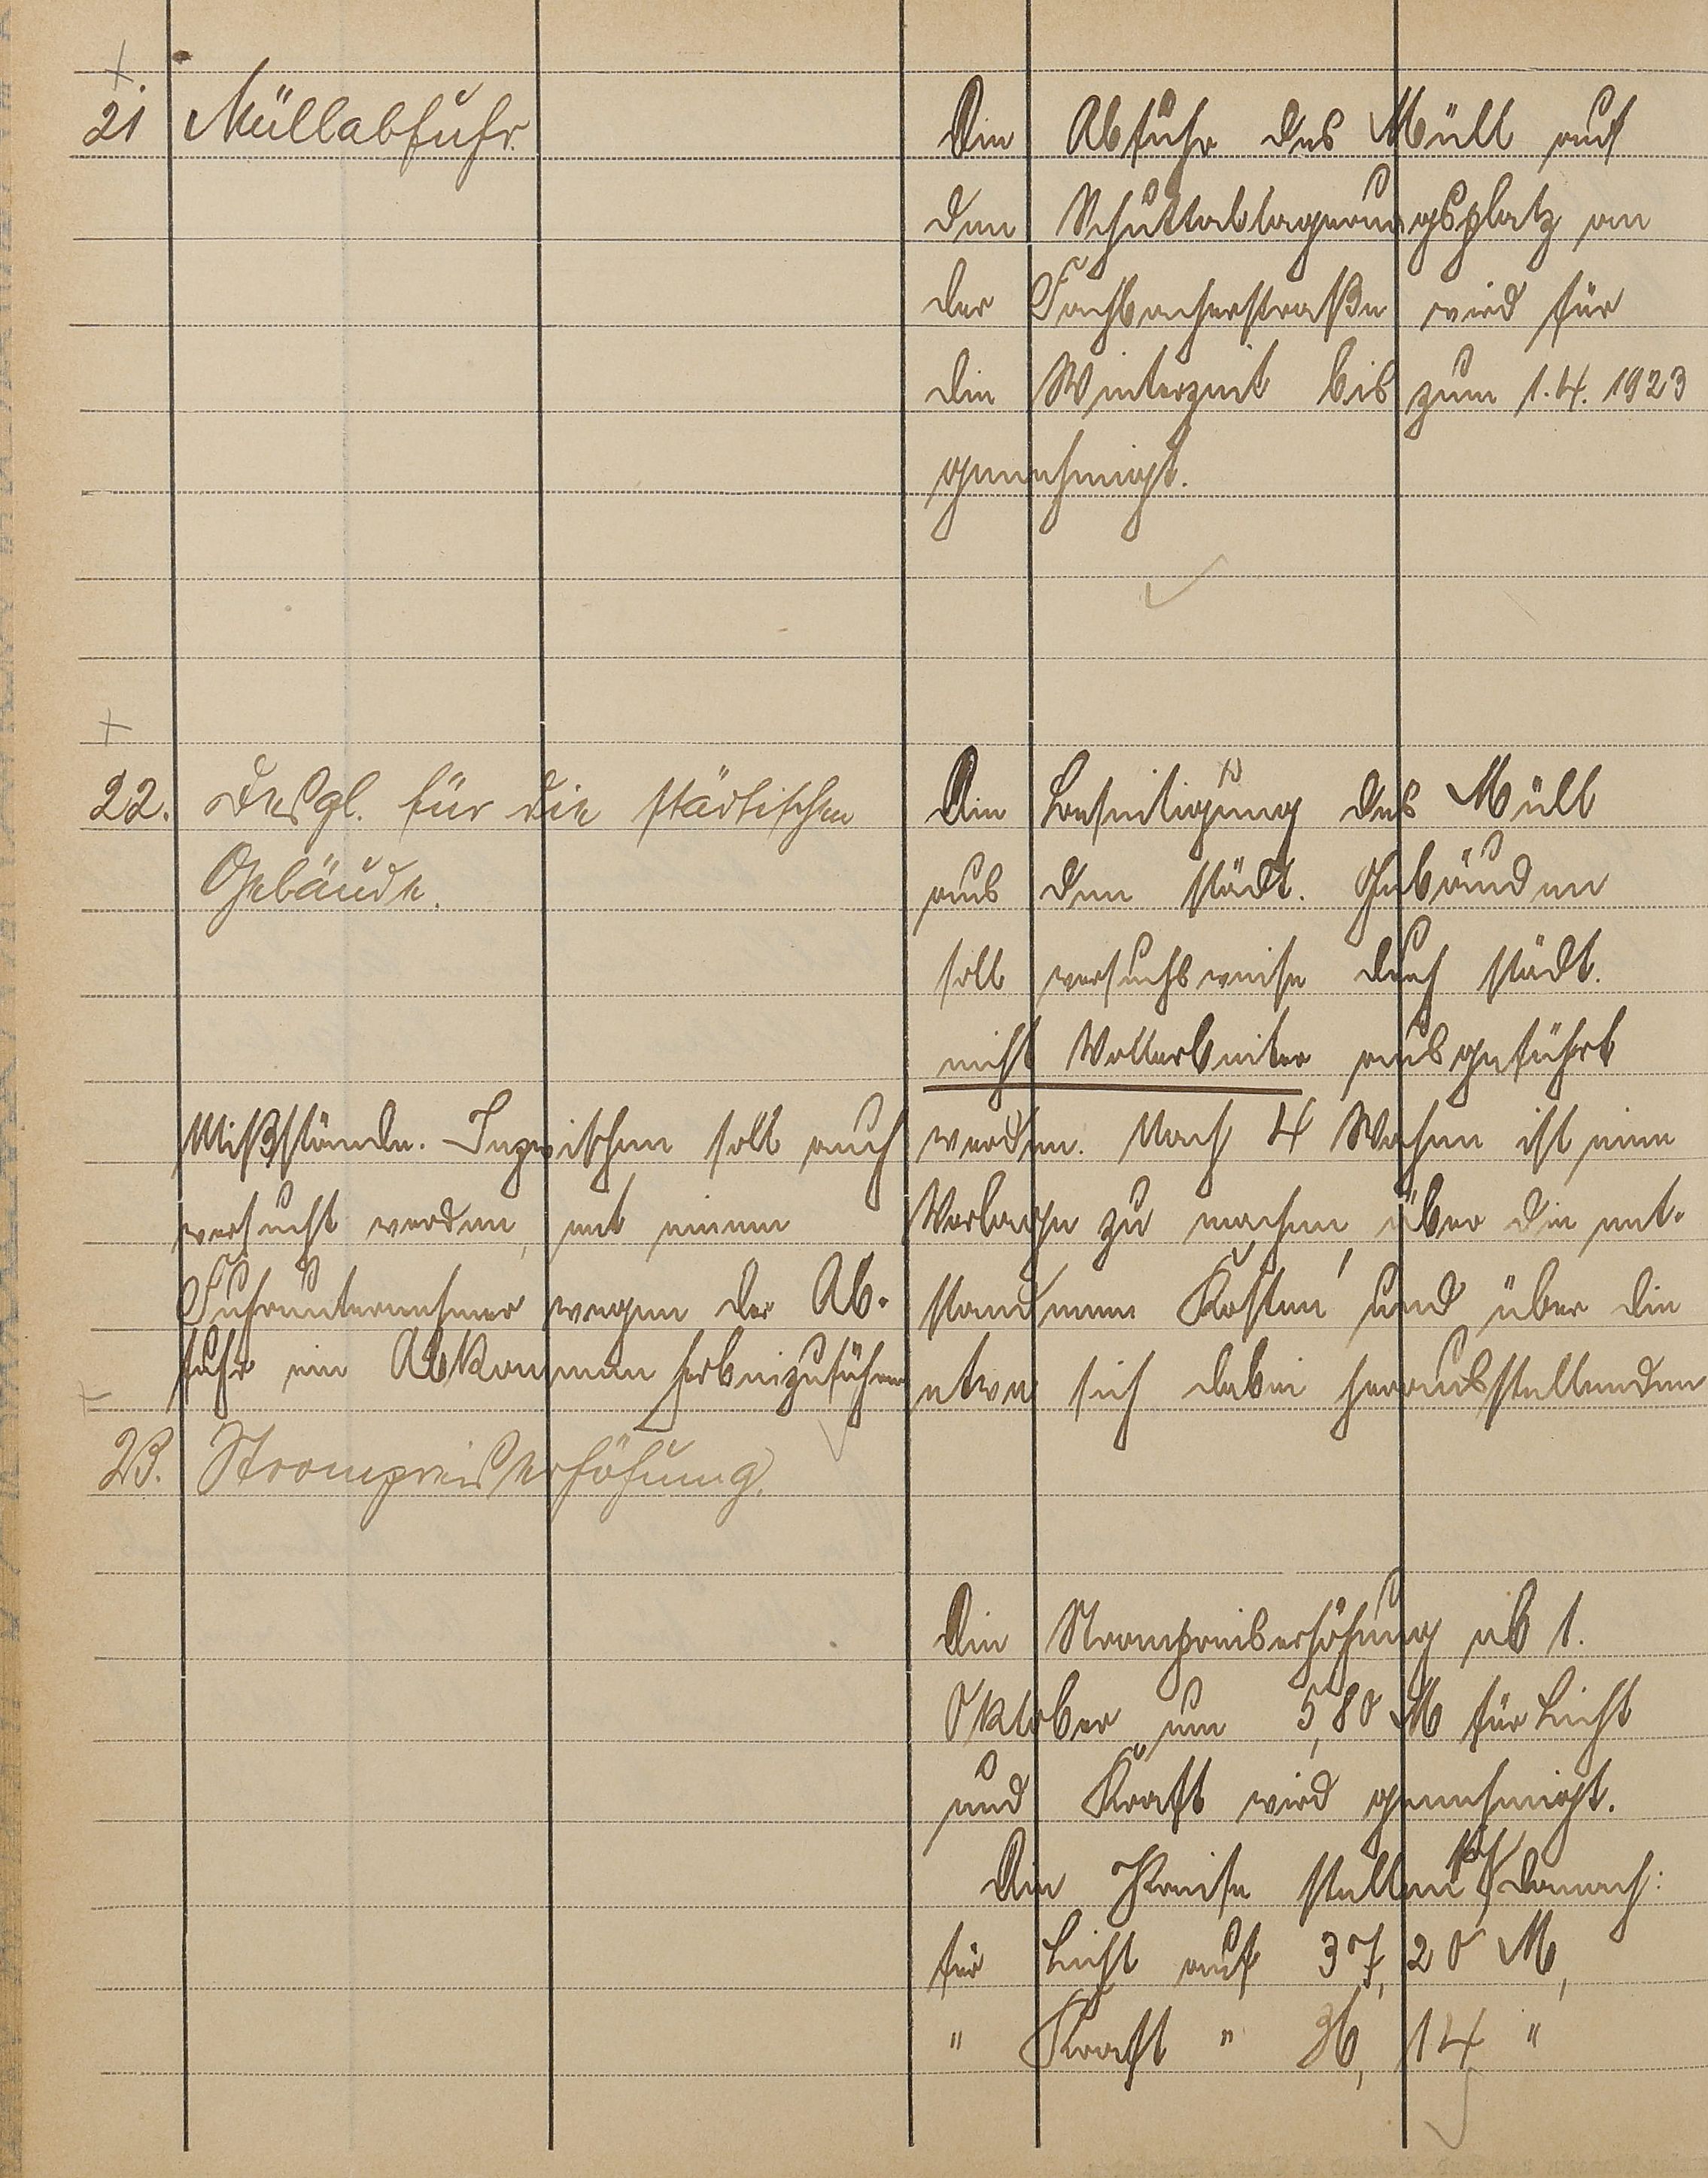 21 Müllabfuhr.
Die Abfuhr des Müll auf
den Schuttablagerungsplatz an
der Fachbacherstraße wird für
die Winterzeit bis zum 1.4.1923
genehmigt.
22. Desgl. für die städtischen
Gebäude.
Die Beseitigung des Müll
aus den städt. Gebäuden
soll versuchsweise durch städt.
nicht Vollarbeiter ausgeführt
werden. Nach 4 Wochen ist eine
Vorlage zu machen, über die ent-
standenen Kosten und über die
etwa sich dabei herausstellenden
Mißstände. Inzwischen soll auch
versucht werden, mit einem
Fuhrunternehmer wegen der Ab-
fuhr ein Abkommen herbeizuführen
23. Strompreiserhöhung.
Die Strompreiserhöhung ab 1.
Oktober um 5,80 M für Licht
und Kraft wird genehmigt.
Die Preise stellen sich danach:
für Licht auf 37,20 M,
" Kraft " 36,14 "